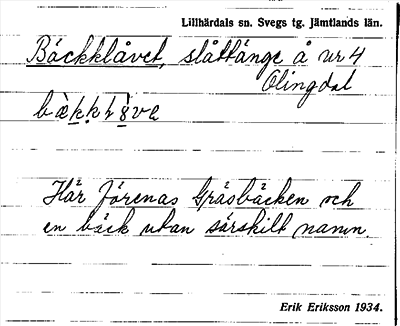 Lillhärdals sn. Svegs tg. Jämtlands län.
Bäckklåvet, slåttänge å ur 4
Olingdal
Här förenas Gråsbäcken och
en bäck utan särskilt namn.
Erik Eriksson 1934.